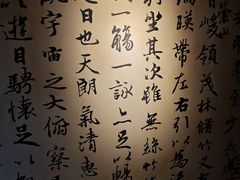 崇山
領茂林脩竹又
湍暎帶左右引以為流
坐其次雖無絲竹
一觴一詠亦足以暢
是日也天朗氣清惠
觀宇宙之大俯察
遊目騁懷足以